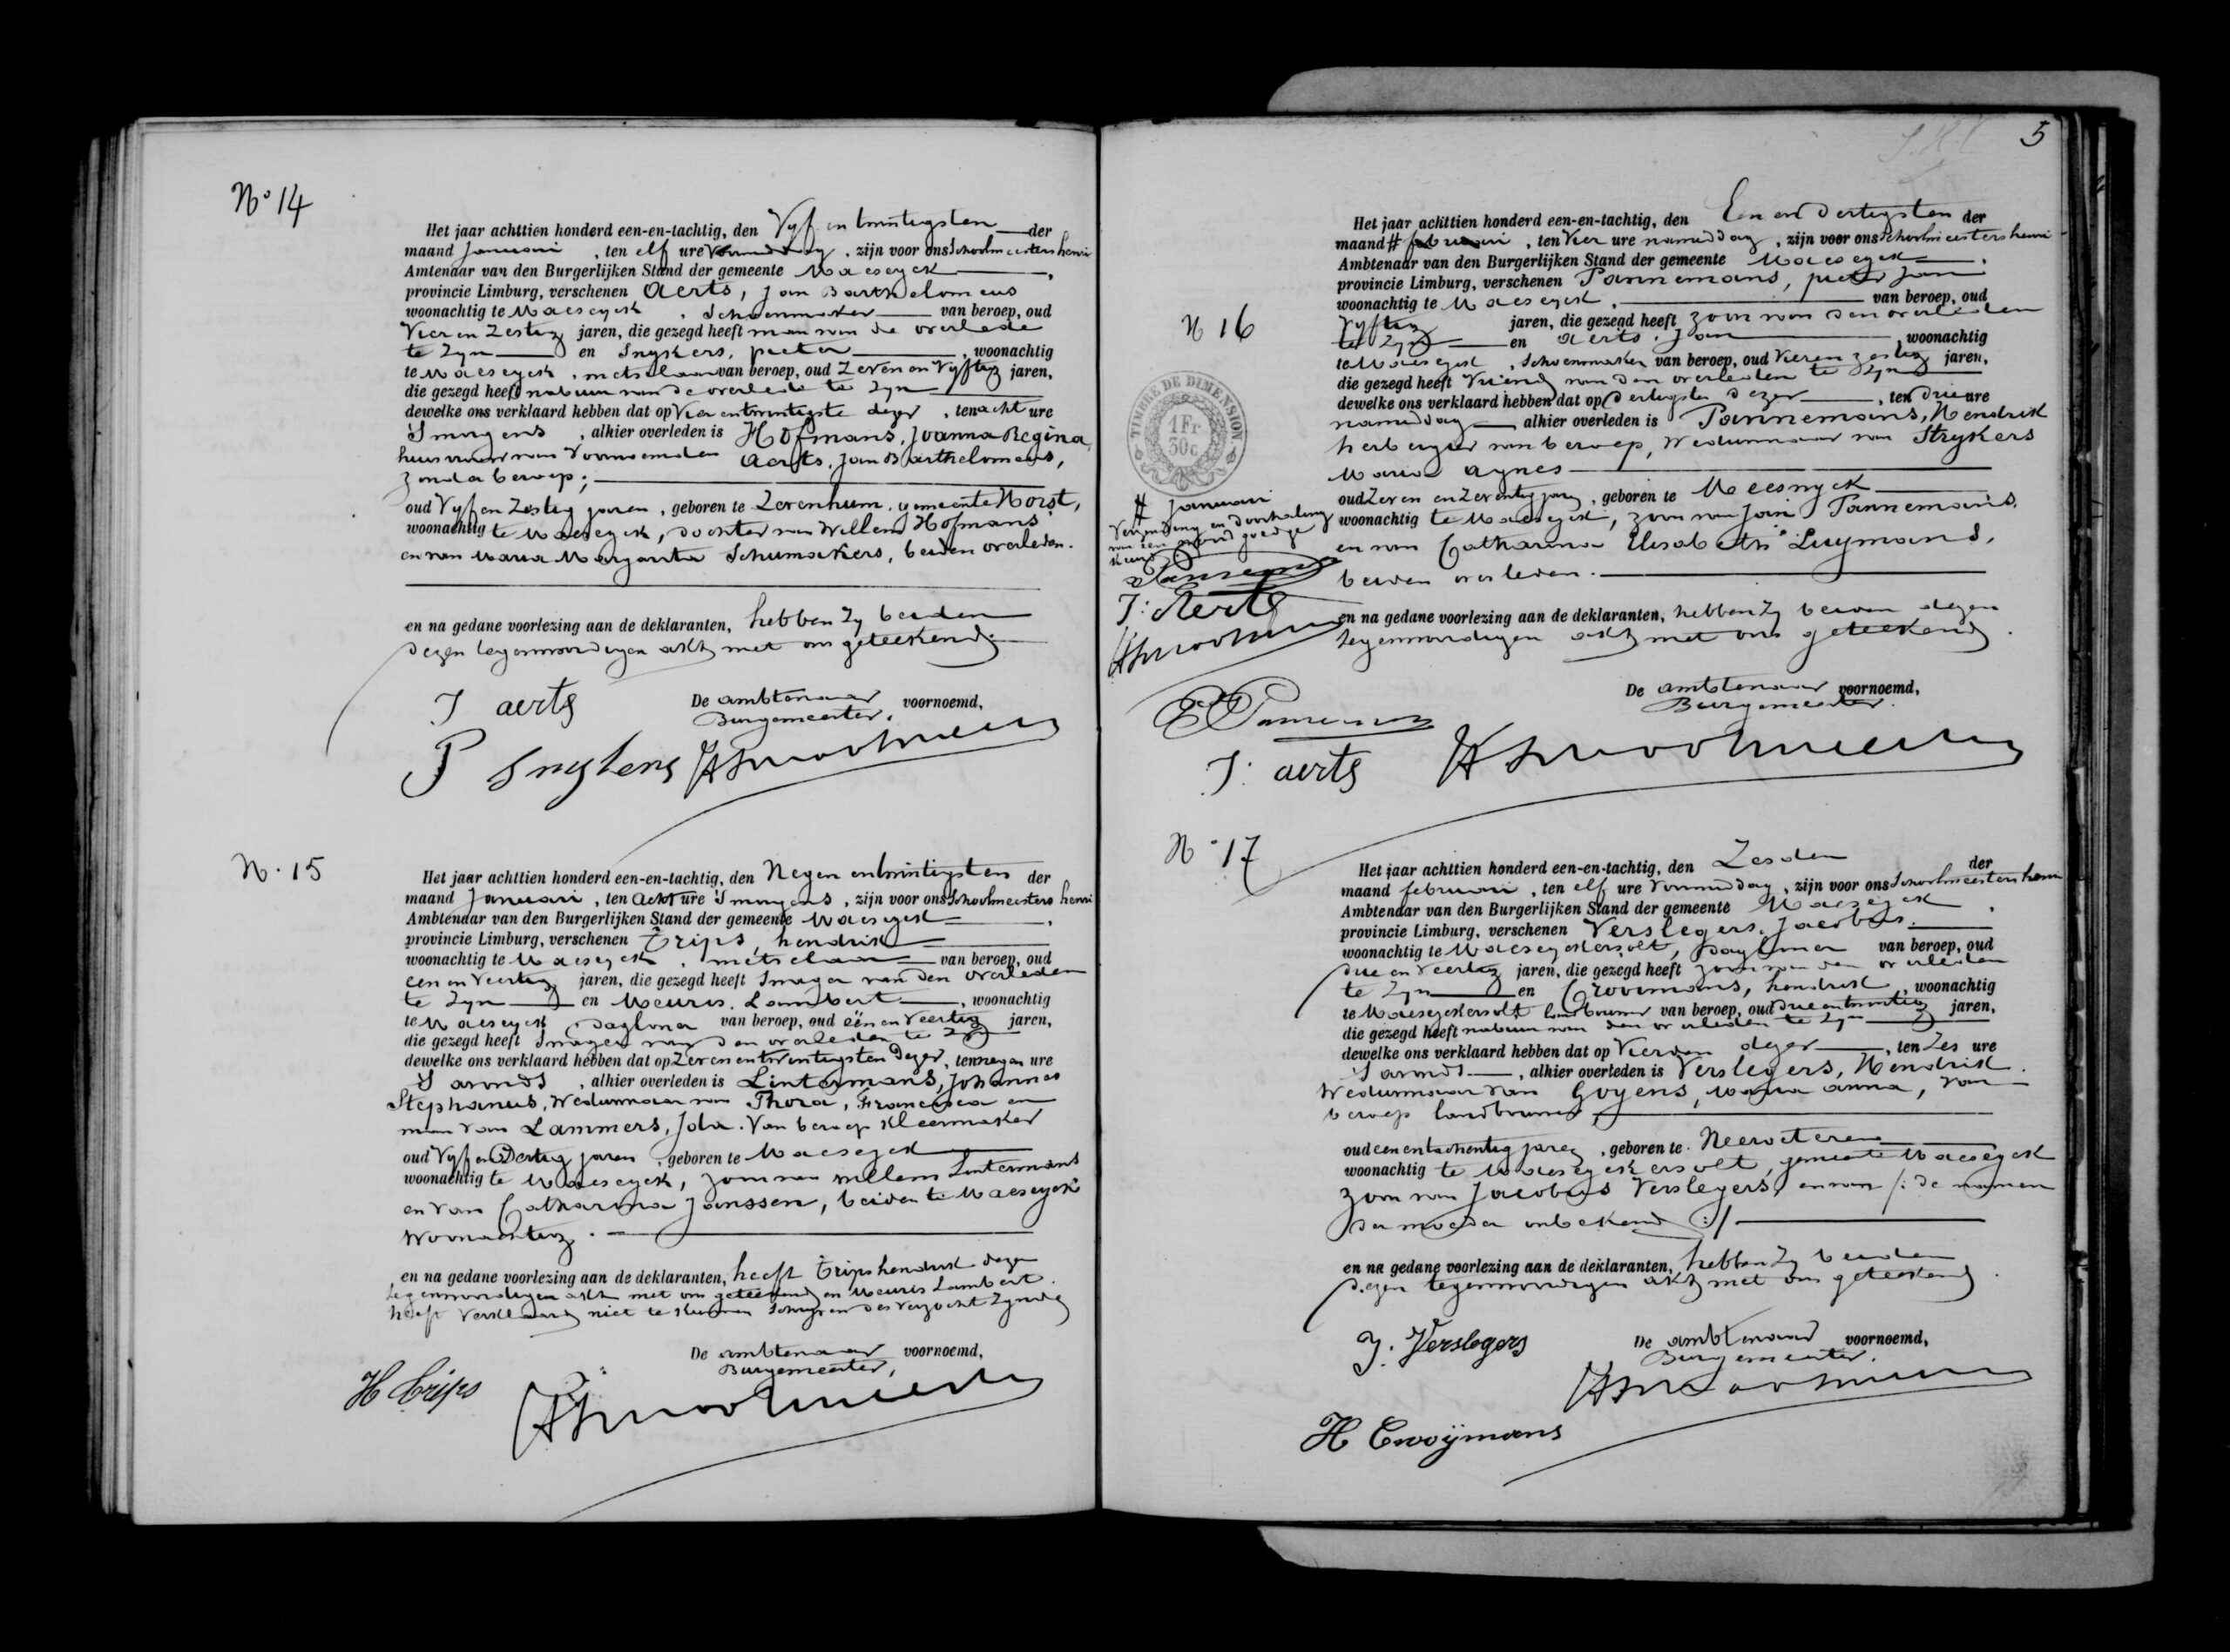 N° 14
Het jaar achttien honderd een-en-tachtig, den Vyf en twintigsten der
maand Januari, ten elf ure voormiddag, zijn voor ons Schoolmeesters henri
Amtenaar van den Burgerlijken Stand der gemeente Maeseyck,
provincie Limburg, verschenen Aerts, Jan Barthelomeus
woonachtig te Maeseyck, Schoenmaker van beroep, oud
Vier en Zestig jaren, die gezegd heeft man van de overlede
te Zyn en Snykers, pieter, woonachtig
te Maeseyck, metselaar van beroep, oud Zeven en Vyftig jaren,
die gezegd heeft nabuur van de overlede te Zyn
dewelke ons verklaard hebben dat op Vier entwintigste dezer, ten acht ure
'S morgens, alhier overleden is Hofmans, Joanna Regina
huisvrouw van Voornoemden Aerts, Jan Barthelomeus,
zonder beroep;
oud Vyf en Zestig jaren, geboren te Zevenhum, gemeente Horst,
woonachtig te Maeseyck, dochter van Willem Hofmans
en van Maria Margarita Schumackers, beiden overleden.
en na gedane voorlezing aan de deklaranten, hebben Zy beiden
dezen tegenwoordigen akt met ons geteekend.
De ambtenaar voornoemd,
Burgemeester,
J aerts
P Snykers
N. 15
Het jaar achttien honderd een-en-tachtig, den Negen entwintigsten der
maand Januari, ten Acht ure 'S morgens, zijn voor ons Schoolmeesters henri
Ambtenaar van den Burgerlijken Stand der gemeente Maeseyck,
provincie Limburg, verschenen Trips, hendrik
woonachtig te Maeseyck, metselaar van beroep, oud
een en Veertig jaren, die gezegd heeft Zwager van den overleden
te Zyn en Meuris, Lambert, woonachtig
te Maeseyck, Dagloner van beroep, oud één en Veertig jaren,
die gezegd heeft Zwager van den overleden te Zyn
dewelke ons verklaard hebben dat op Zeven entwintigsten dezer, ten negen ure
'S avonds, alhier overleden is Lintermans, Johannes
Stephanus, Weduwnaar van Thora, Francisca en
man van Lammers, Ida. Van beroep Kleermaker
oud Vyf en Dertig jaren, geboren te Maeseyck
woonachtig te Maeseyck, zoon van Willem Lintermans
en van Catharina Janssen, beiden te Maeseyck
Woonachtig.
en na gedane voorlezing aan de deklaranten, heeft Trips hendrik dezen
tegenwoordigen akt met ons geteekend en Meuris Lambert
heeft Verklaard niet te kunnen Schryven des Verzocht Zynde
De ambtenaar voornoemd,
Burgemeester,
H Trips
5
N 16
Het jaar achttien honderd een-en-tachtig, den Een en Dertigsten der
maand # februari, ten Vier ure namiddag, zijn voor ons Schoolmeesters henri
Ambtenaar van den Burgerlijken Stand der gemeente Maeseyck,
provincie Limburg, verschenen Pannemans, pieter Jan
woonachtig te Maeseyck, van beroep, oud
Vyftig jaren, die gezegd heeft zoon van den overleden
te Zyn en Aerts, Jan, woonachtig
te Maeseyck, Schoenmaker van beroep, oud Vier en zestig jaren,
die gezegd heeft Vriend van den overleden te Zyn
dewelke ons verklaard hebben dat op Dertigsten dezer, ten drie ure
namiddag alhier overleden is Pannemans, Hendrik
herbergier van beroep, Weduwnaar van Strykers
Maria Agnes
oud Zeven en Zeventig jaren, geboren te Meeswyck
woonachtig te Maeseyck, zoon van Jan Pannemans,
en van Catharina Elisabeth Luymans,
beiden overleden.
en na gedane voorlezing aan de deklaranten, hebben Zy beiden dezen
tegenwoordigen akt met ons geteekend.
TIMBRE DE DIMENSION.
1 Fr.
50 c.
# Januari
Verzending en doorhaling
van een woord goedge
keurd
J: Aerts
De ambtenaar voornoemd,
Burgemeester.
J: aerts
N° 17
Het jaar achttien honderd een-en-tachtig, den Zesden der
maand februari, ten elf ure Voormiddag, zijn voor ons Schoolmeesters henri
Ambtenaar van den Burgerlijken Stand der gemeente Maeseyck,
provincie Limburg, verschenen Verslegers, Jacobus.
woonachtig te Maeseyckersolt, Dagloner van beroep, oud
Drie en Veertig jaren, die gezegd heeft zoon van den overleden
te Zyn en Crooimans, hendrik, woonachtig
te Maeseyckersolt landbouwer van beroep, oud Drie entwintig jaren,
die gezegd heeft nabuur van den overleden te Zyn
dewelke ons verklaard hebben dat op Vierden dezer, ten Zes ure
'S avonds, alhier overleden is Verslegers, Hendrik.
Weduwnaar van Goyens, Maria Anna, van
beroep landbouwer,
oud een entachentig jaren, geboren te Neeroeteren
woonachtig te Maeseyckersolt, gemeente Maeseyck
zoon van Jacobus Verslegers, en van /: de namen
der moeder onbekend :/
en na gedane voorlezing aan de deklaranten, hebben Zy beiden
dezen tegenwoordigen akt met ons geteekend.
De ambtenaar voornoemd,
Burgemeester.
J. Verslegers
H Crooÿmans